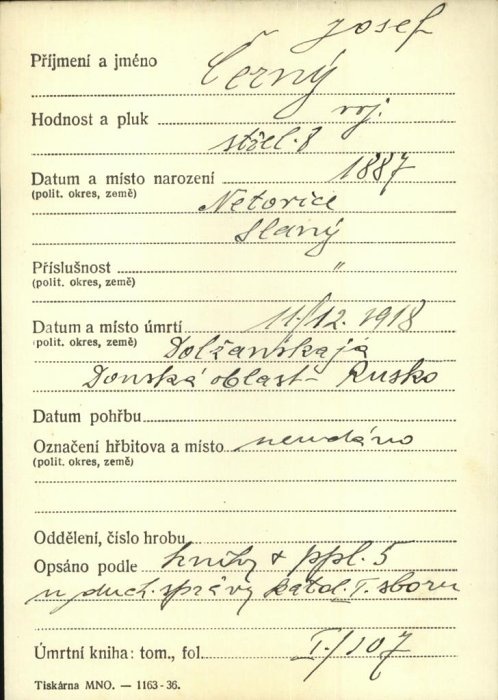 Josef
Příjmení a jméno Černý
Hodnost a pluk voj.
střel. 8
Datum a místo narození 1887
(polit. okres, země) Netovice
Slaný
Příslušnost "
(polit. okres, země)
Datum a místo úmrtí 11./12. 1918
(polit. okres, země) Dolžanskaja
Donská oblast - Rusko
Datum pohřbu
Označení hřbitova a místo neudáno
(polit. okres, země)
Oddělení, číslo hrobu
Opsáno podle knihy + ppl. 5
u duch. správy katol. I. sboru
Úmrtní kniha: tom., fol. I./107
Tiskárna MNO. — 1163-36.